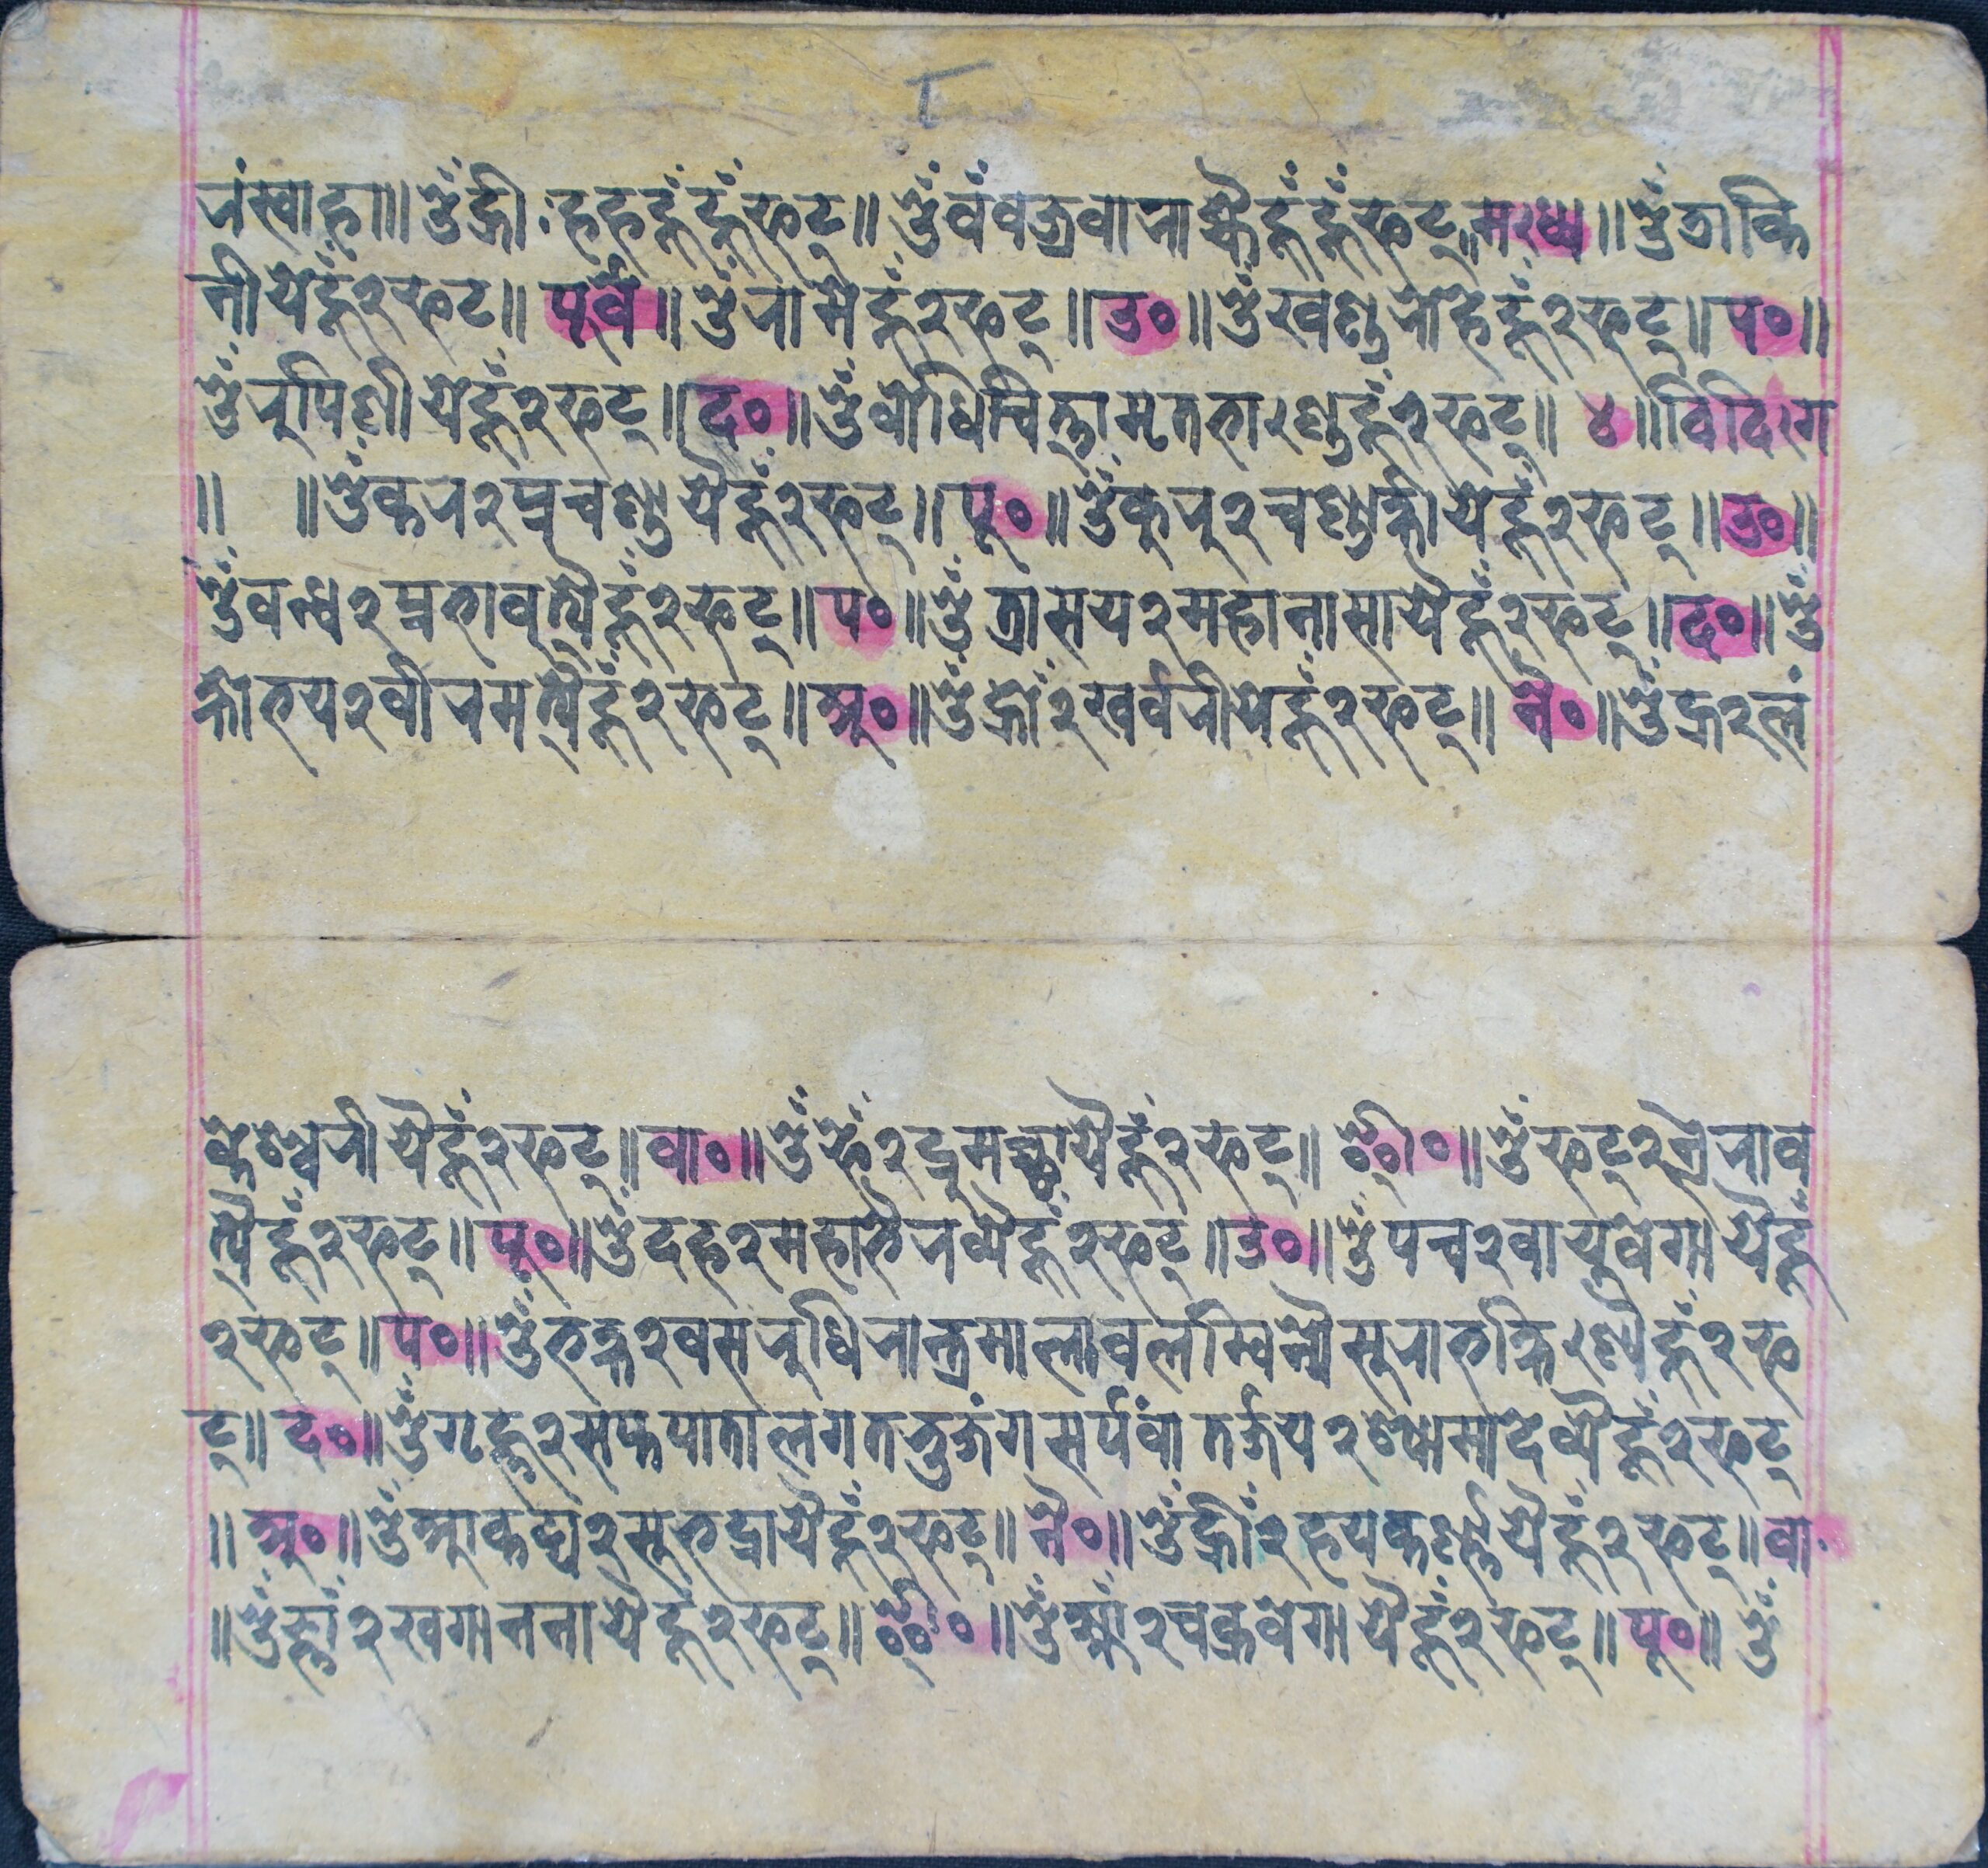 रं स्वाहा॥ ॐ ह्रीः हहहूँहूँफट्॥ ॐ वँ वज्रवाराह्यैहूँहूँफट्॥ मध्य॥ ॐ डाकि
नीयेहूँ२फट॥ पूर्व॥ ॐ रामेहूँ२फट्॥ उ०॥ ॐ खण्डरोहेहूँ२फट्॥ प०॥
ॐ रुपिणीयेहूँ२फट्॥ द०॥ ॐ बोधिचित्तामृतभाण्डहूँ२फट्॥ ४॥ विदिग
॥ ॥ ॐ कर२प्रचण्डायैहूँ२फट्॥ पू०॥ ॐ कुरु२चण्डाक्षीयेहूँ२फट्॥ उ०॥
ॐ बन्ध२प्रभावत्यैहूँ२फट्॥ प०॥ ॐ त्रासय२महानासायैहूँ२फट्॥ द०॥ ॐ
क्षोभय२वीरमत्यैहूँ२फट्॥ अ०॥ ॐ ह्रोँ२खर्वरीयेहूँ२फट्॥ नै०॥ ॐ ह्र२लं
केश्वरीयैहूँ२फट्॥ वा०॥ ॐ फेँ२द्रुमच्छायैहूँ२फट्॥ ई०॥ ॐ फट्२ऐराव
त्यैहूँ२फट्॥ पू०॥ ॐ दह२महाभैरव्यैहूँ२फट्॥ उ०॥ ॐ पच२वायुवेगायैहूँ
२फट्॥ प०॥ ॐ भक्ष२वसरुधिरान्त्रमालावलम्बिन्यैसुराभक्षिण्यैहूँ२फ
ट्॥ द०॥ ॐ गृह्ण२सप्तपातालगतभुजंगसर्पंवा तर्जय२श्यामादेव्यैहूँ२फट्
॥ अ०॥ ॐ आकड्य२सुभद्रायैहूँ२फट्॥ नै०॥ ॐ ह्रीँ२हयकर्ण्णयैहूँ२फट्॥ वा॰
॥ ॐ ज्लाँ२खगाननायैहूँ२फट्॥ ई०॥ ॐ क्ष्माँ२चक्रवेगायैहूँ२फट्॥ पू०॥ ॐ